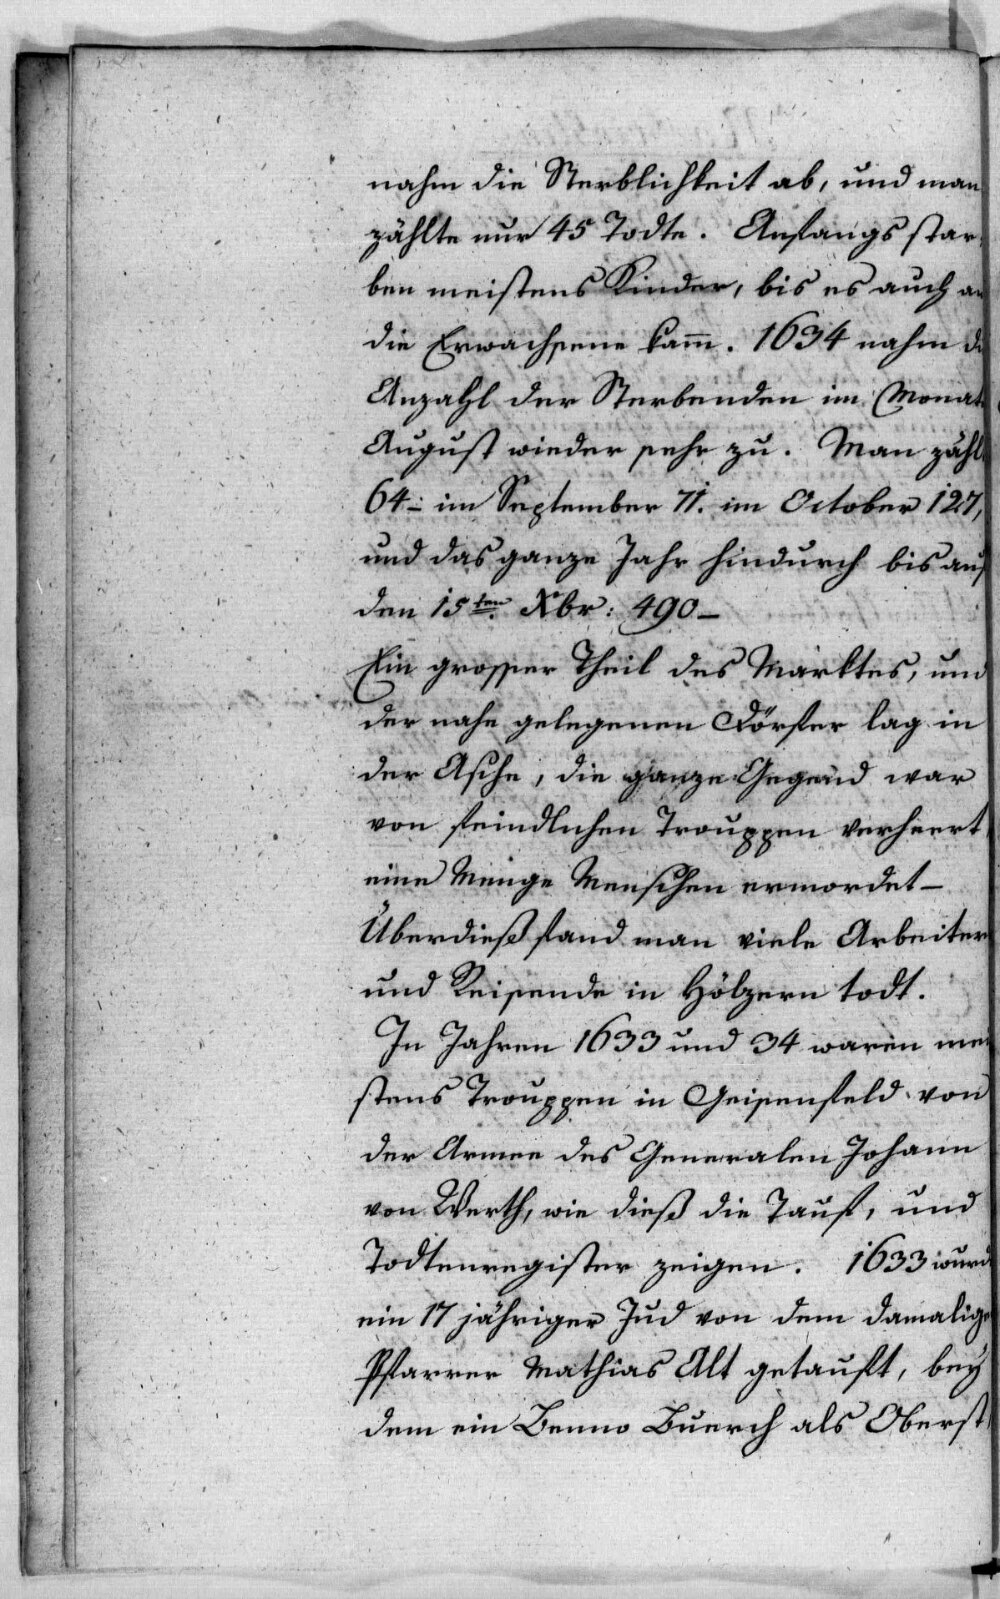 nahm die Sterblichkeit ab, und man
zählte nur 45 Todte. Anfangs star-
ben meistens Kinder, bis es auch an
die Erwachsene kam̄. 1634 nahm di
Anzahl der Sterbenden im Monat
August wieder sehr zu. Man zähl
64- im September 71. im October 127,
und das ganze Jahr hindurch bis auf
den 15ten Xbr: 490-
Ein grosser Theil des Marktes, und
der nahe gelegenen Dörfer lag in
der Asche, die ganze Gegend war
von feindlichen Trouppen verheert
eine Menge Menschen ermordet-
Überdieß fand man viele Arbeiter
und Reisende in Hölzern todt.
In Jahren 1633 und 34 waren mei
stens Trouppen in Geisenfeld von
der Armee des Generalen Johann
von Werth, wie dieß die Tauf, und
Todtenregister zeigen. 1633 wurd
ein 17 jähriger Jud von dem damalige
Pfarrer Mathias Alt getauft, bey
dem ein Benno Buerch als Oberst